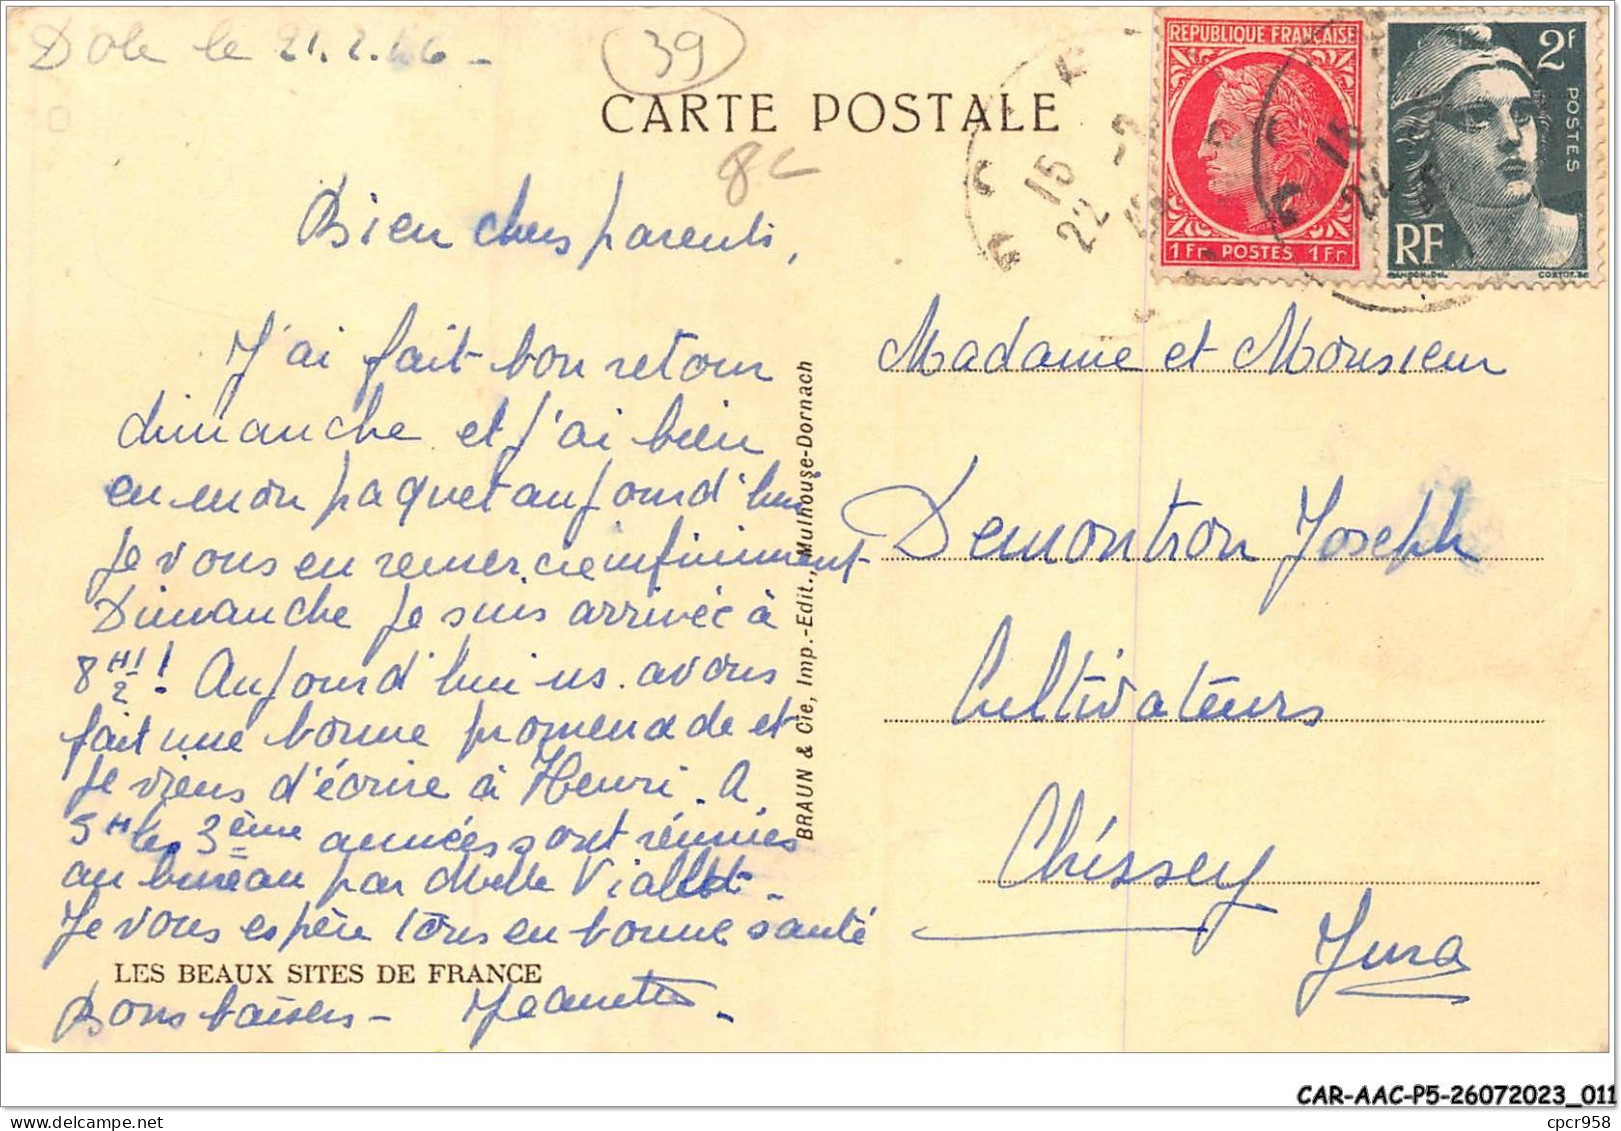 Dole le 21.2.46 -
39
CARTE POSTALE
8c
REPUBLIQUE FRANÇAISE
1Fr POSTES 1Fr
2f
POSTES
RF
15
22 -2
15
22
Bien chers parents,
J'ai fait bon retour
dimanche et j'ai bien
eu mon paquet aujourd'hui
Je vous en remercie infiniment
Dimanche je suis arrivée à
8H 1/2! Aujourd'hui ns. avons
fait une bonne promenade et
Je viens d'écrire à Henri. A
5H les 3ème années sont réunies
au bureau par Melle Viallet -
Je vous espère tous en bonne santé
LES BEAUX SITES DE FRANCE
Bons baisers - Jeannette.
BRAUN & Cie, Imp.-Edit., Mulhouse-Dornach
Madame et Monsieur
Demontron Joseph
Cultivateurs
Chissey
Jura
CAR-AAC-P5-26072023_011
cpcr958